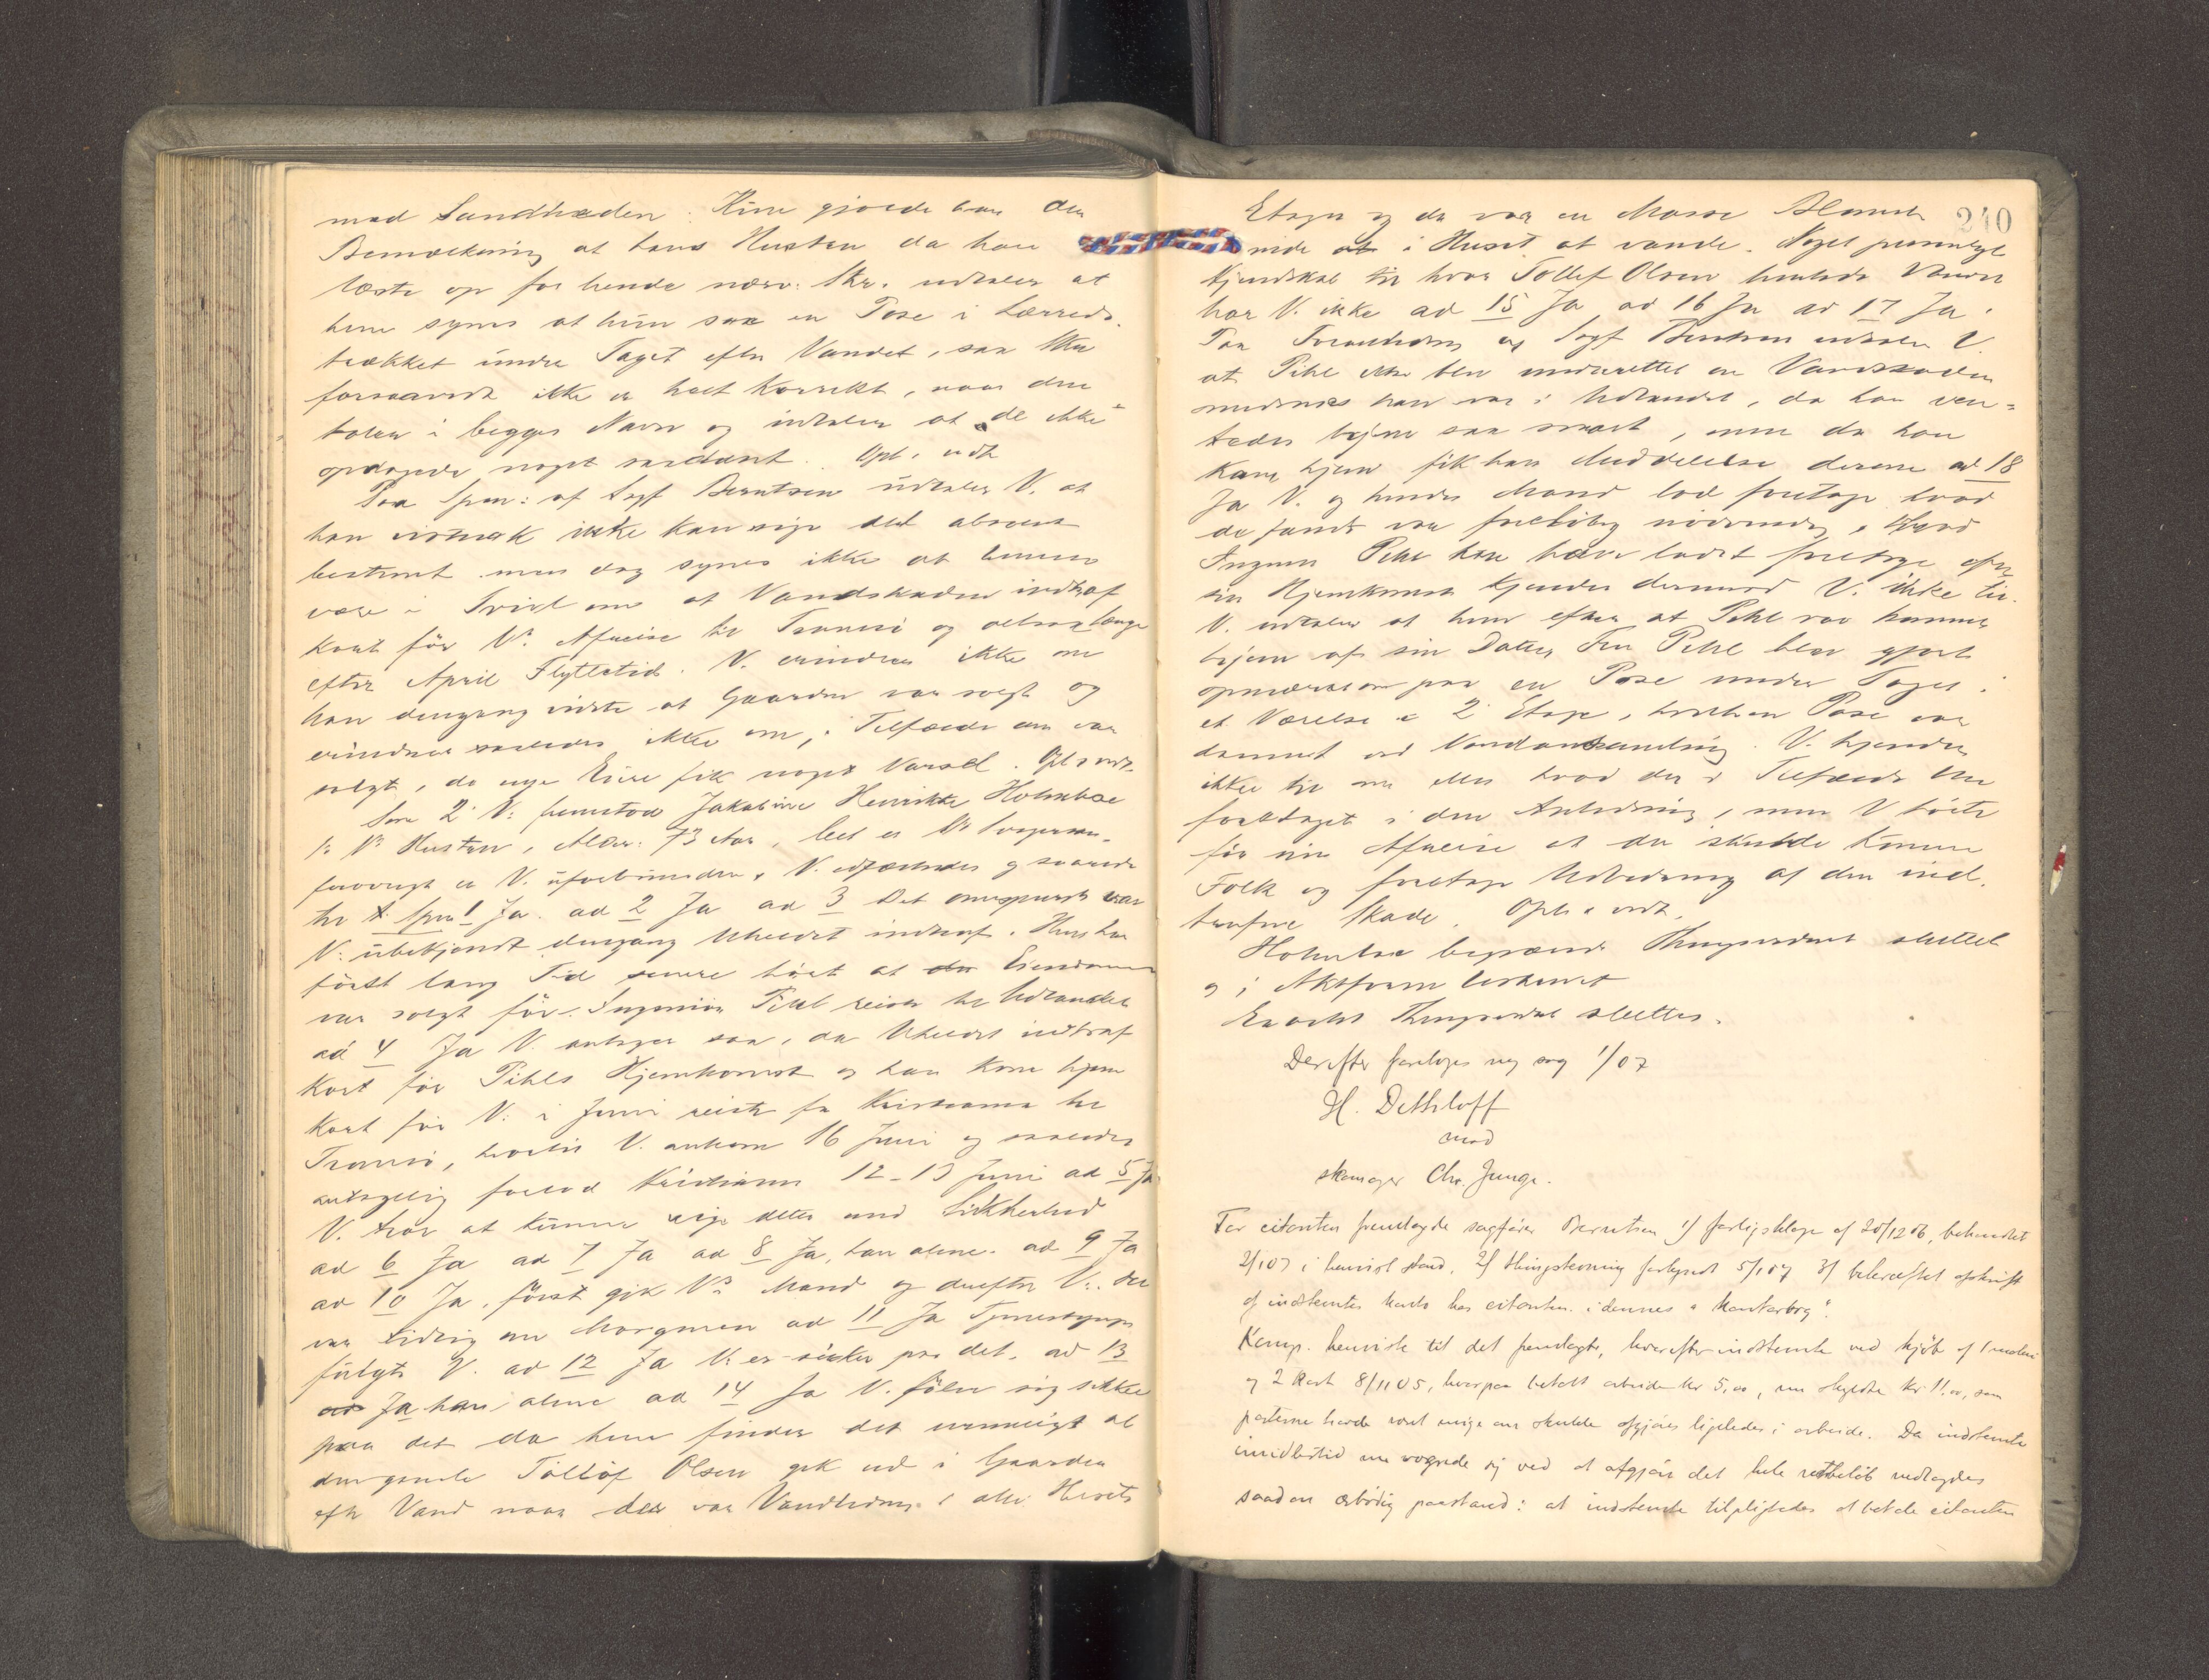 mod Sandheden. Kun gjorde han den
Bemærkning at hans Hustru da han
læste op for hende nærv. Skr. udtaler at
hun synes at hun saa en Pose i Lærreds-
trækket under Taget efter Vandet, saa Skr
forsaavidt ikke er helt korrekt, naar den
taler i begges Navn og udtaler at de ikke
opdagede noget saadant. Opl. vedt
Paa Spm: af Sagf Berntsen udtaler V. at
han vistnok ikke kan sige det absolut
bestemt men dog synes ikke at kunne
være i Tvivl om at Vandskaden indtraf
kort før Vs Afreise til Tromsø og altsaa længe
efter April Flyttetid. V. erindrer ikke om
han dengang vidste at Gaarden var solgt og
erindrer saaledes ikke om, i Tilfælde den var
solgt, de nye Eiere fik noget Varsel. Opl. vedt.
Som 2 V: fremstod Jakobine Henrikke Holmboe
1ste Vs Hustru, Alder: 73 Aar,
forøvrigt er V. uforbunden. V. edfæstedes og svarede
til Spm 1 Ja. ad 2 Ja ad 3 Det omspurgte var
V: ubekjendt dengang Uheldet indtraf. Hun har
først lang Tid senere hørt at Eiendommen
var solgt før Ingeniør Pihl reiste til Udlandet
ad 4 Ja V. antager saa, da Uheldet indtraf
kort før Pihls Hjemkomst og han kom hjem
kort før V: i Juni reiste fra Kristiania til
Tromsø, hvortil V. ankom 16 Juni og saaledes
antagelig forlod Kristiania 12-13 Juni ad 5 Ja
V. tror at kunne sige dette med Sikkerhed
ad 6 Ja ad 7 Ja ad 8 Ja, han alene. ad 9 Ja
ad 10 Ja, først gik Vs Mand og derefter V:. Det
var tidlig om Morgenen ad 11 Ja Tjenestepigen
fulgte V. ad 12 Ja V: er sikker paa det. ad 13
Ja han alene ad 14 Ja V. føler sig sikker
paa det da hun finder det urimeligt at
den gamle Tollof Olsen gik ud i Gaarden
efter Vand naar der var Vandledning i alle Husets
240
Etager og da var en Masse Mennesker
nede i Huset at vande. Noget personligt
Kjendskab til hvor Tollef Olsen hentede Vandet
har V. ikke ad 15 Ja ad 16 Ja ad 17 Ja.
Paa Foranledning af Sagf Berntsen udtaler V.
at Pihl ikke blev underrettet om Vandskaden
medens han var i Udlandet, da han ven-
tedes hjem saa snart, men da han
kom hjem fik han Meddelelse derom ad 18
Ja V. og hendes Mand lod foretage hvad
de fandt var foreløbig nødvendig. Hvad
Ingeniør Pihl kan have ladet foretage efter
sin Hjemkomst kjender derimod V. ikke til.
V. udtaler at hun efter at Pihl var kommet
hjem af sin Datter Fru Pihl blev gjort
opmærksom paa en Pose under Taget i
et Værelse i 2 Etage, hvilken Pose var
dannet ved Vandansamling. V. kjender
ikke til om eller hvad der i Tilfælde blev
foretaget i den Anledning, men V hørte
før sin Afreise at der skulde komme
Folk og foretage Udbedring af den ind-
trufne Skade. Opl. vedt.
Holmboe begjærede Thingsvidnet sluttet
og i Aktform beskrevet
Eragtet Thingsvidnet sluttes.
Derefter foretoges ny sag 1/07
H. Dethloff
mod
skomager Chr. Junge.
For citanten fremlagde sagfører Berntsen 1) forligsklage af 20/12 06, behandlet
2/1 07 i henvist stand, 2) thingstevning forkyndt 5/1 07 3) bekræftet afskrift
af indstevntes konto hos citanten i dennes "kontorbog".
Komp. henviste til det fremlagte, hvorefter indstevnte ved kjøb af 1 maleri
og 2 Kort 8/11 05, hvorpaa betalt arbeide kr 5,00, en skyldte kr 11,00, som
parterne havde været enige om skulde afgjøres ligeledes i arbeide. Da indstevnte
imidlertid nu vægrede sig ved at afgjøre det hele restbeløb nedlagdes
saadan ærbødig paastand: at indstevnte tilpligtedes at betale citanten